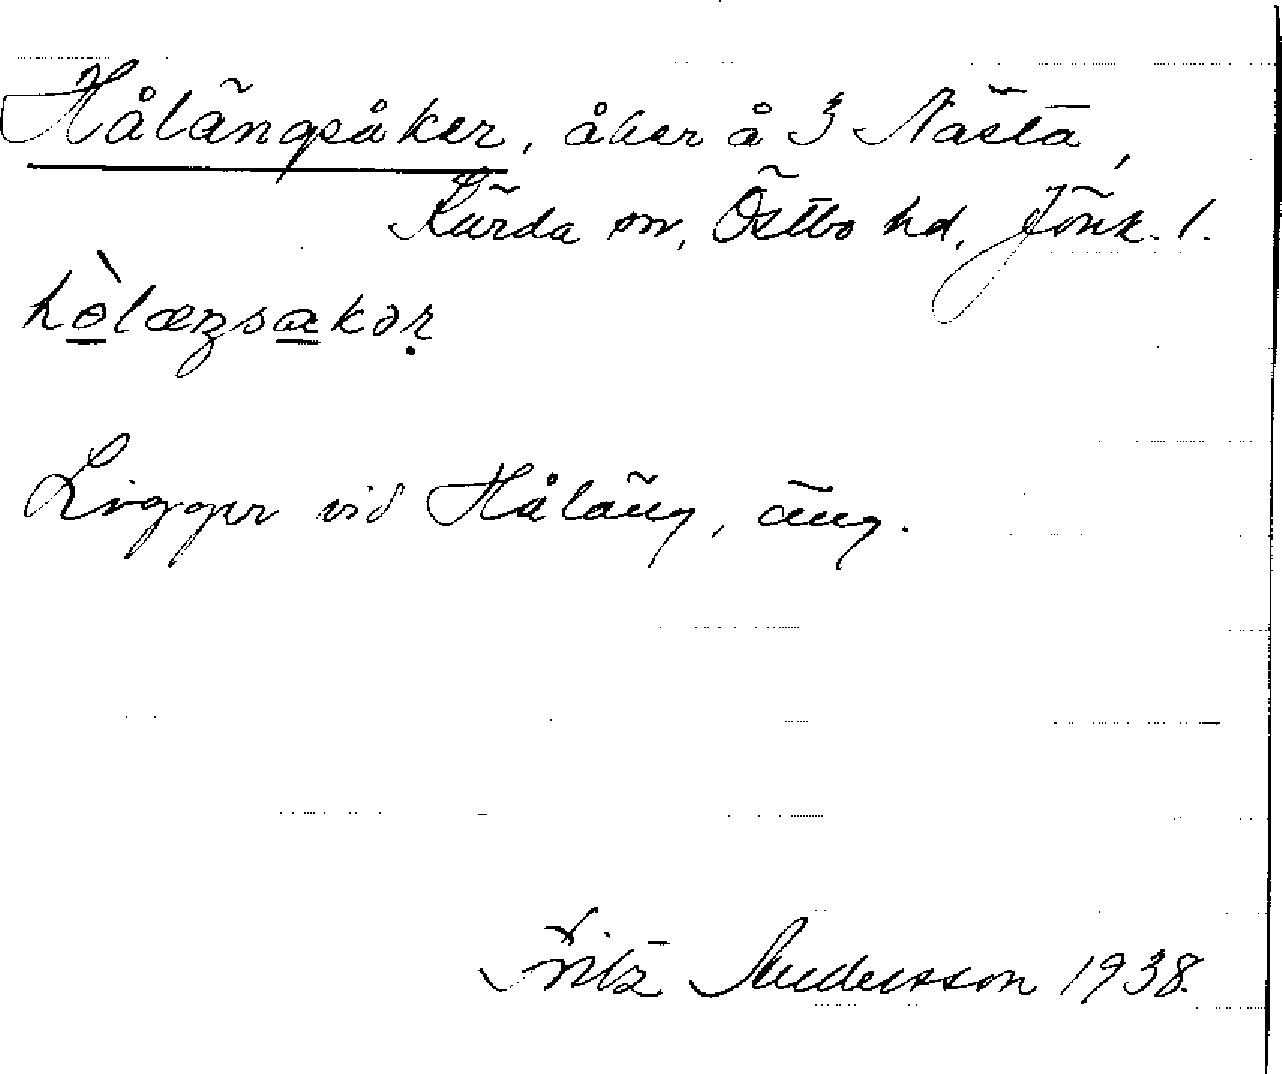 Hålängsåker, åker å 3 Nästa,
Kärda sn, Östbo hd, Jönk. l.
hòlæŋsakər
Ligger vid Häläng, äng.
Fritz Andersson 1938.